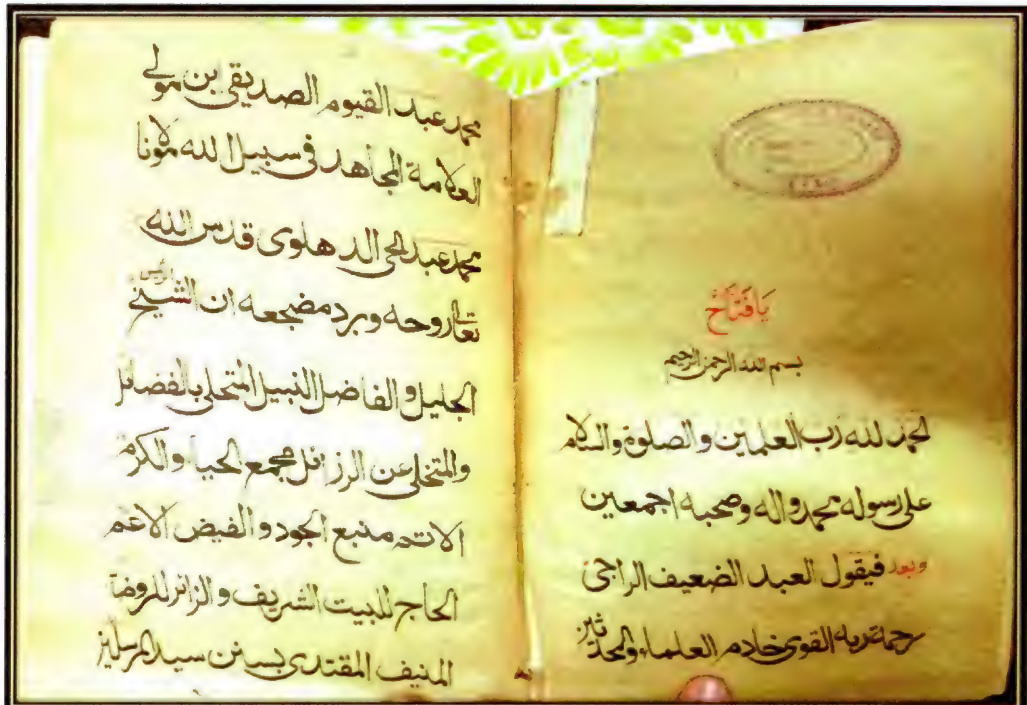 يَا فَتَّاحُ
بسم الله الرحمن الرحيم
الحمد لله رب العلمين والصلوة والسلام
على رسوله محمد واله وصحبه اجمعين
وبعد فيقول العبد الضعيف الراجى
رحمة ربه القوى خادم العلماء والمحدثين
محمد عبد القيوم الصديقى بن مولى
العلامة المجاهد فى سبيل الله مولانا
محمد عبد الحى الدهلوى قدس الله
تعالى روحه وبرد مضجعه ان الشيخ الرئيس
الجليل والفاضل النبيل المتحلى بالفضائل
والمتخلى عن الرزائل مجمع الحياء والكرم
الاتم منبع الجود والفيض الاعم
الحاج للبيت الشريف والزائر للروضة
المنيف المقتدى بسنن سيد المرسلين